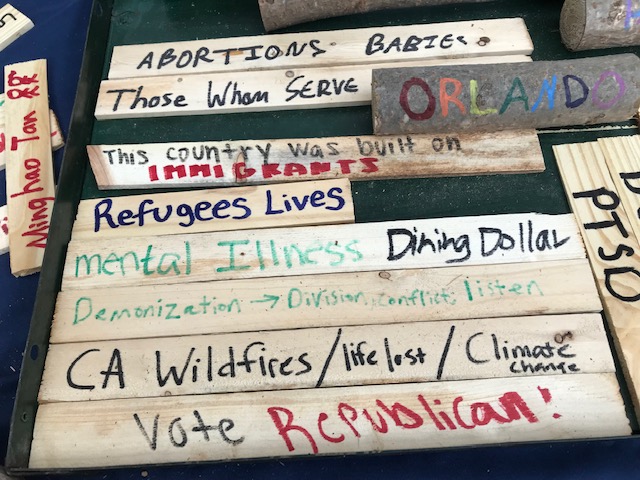 ABORTIONS BABIES
Those Whom SERVE
ORLANDO
This country was built on
IMMIGRANTS
Refugees Lives
mental Illness Dining Dollar
Demonization → Division, conflict, listen
CA Wildfires / life lost / Climate
change
Vote Republican!
Minghao Tan
PTSD